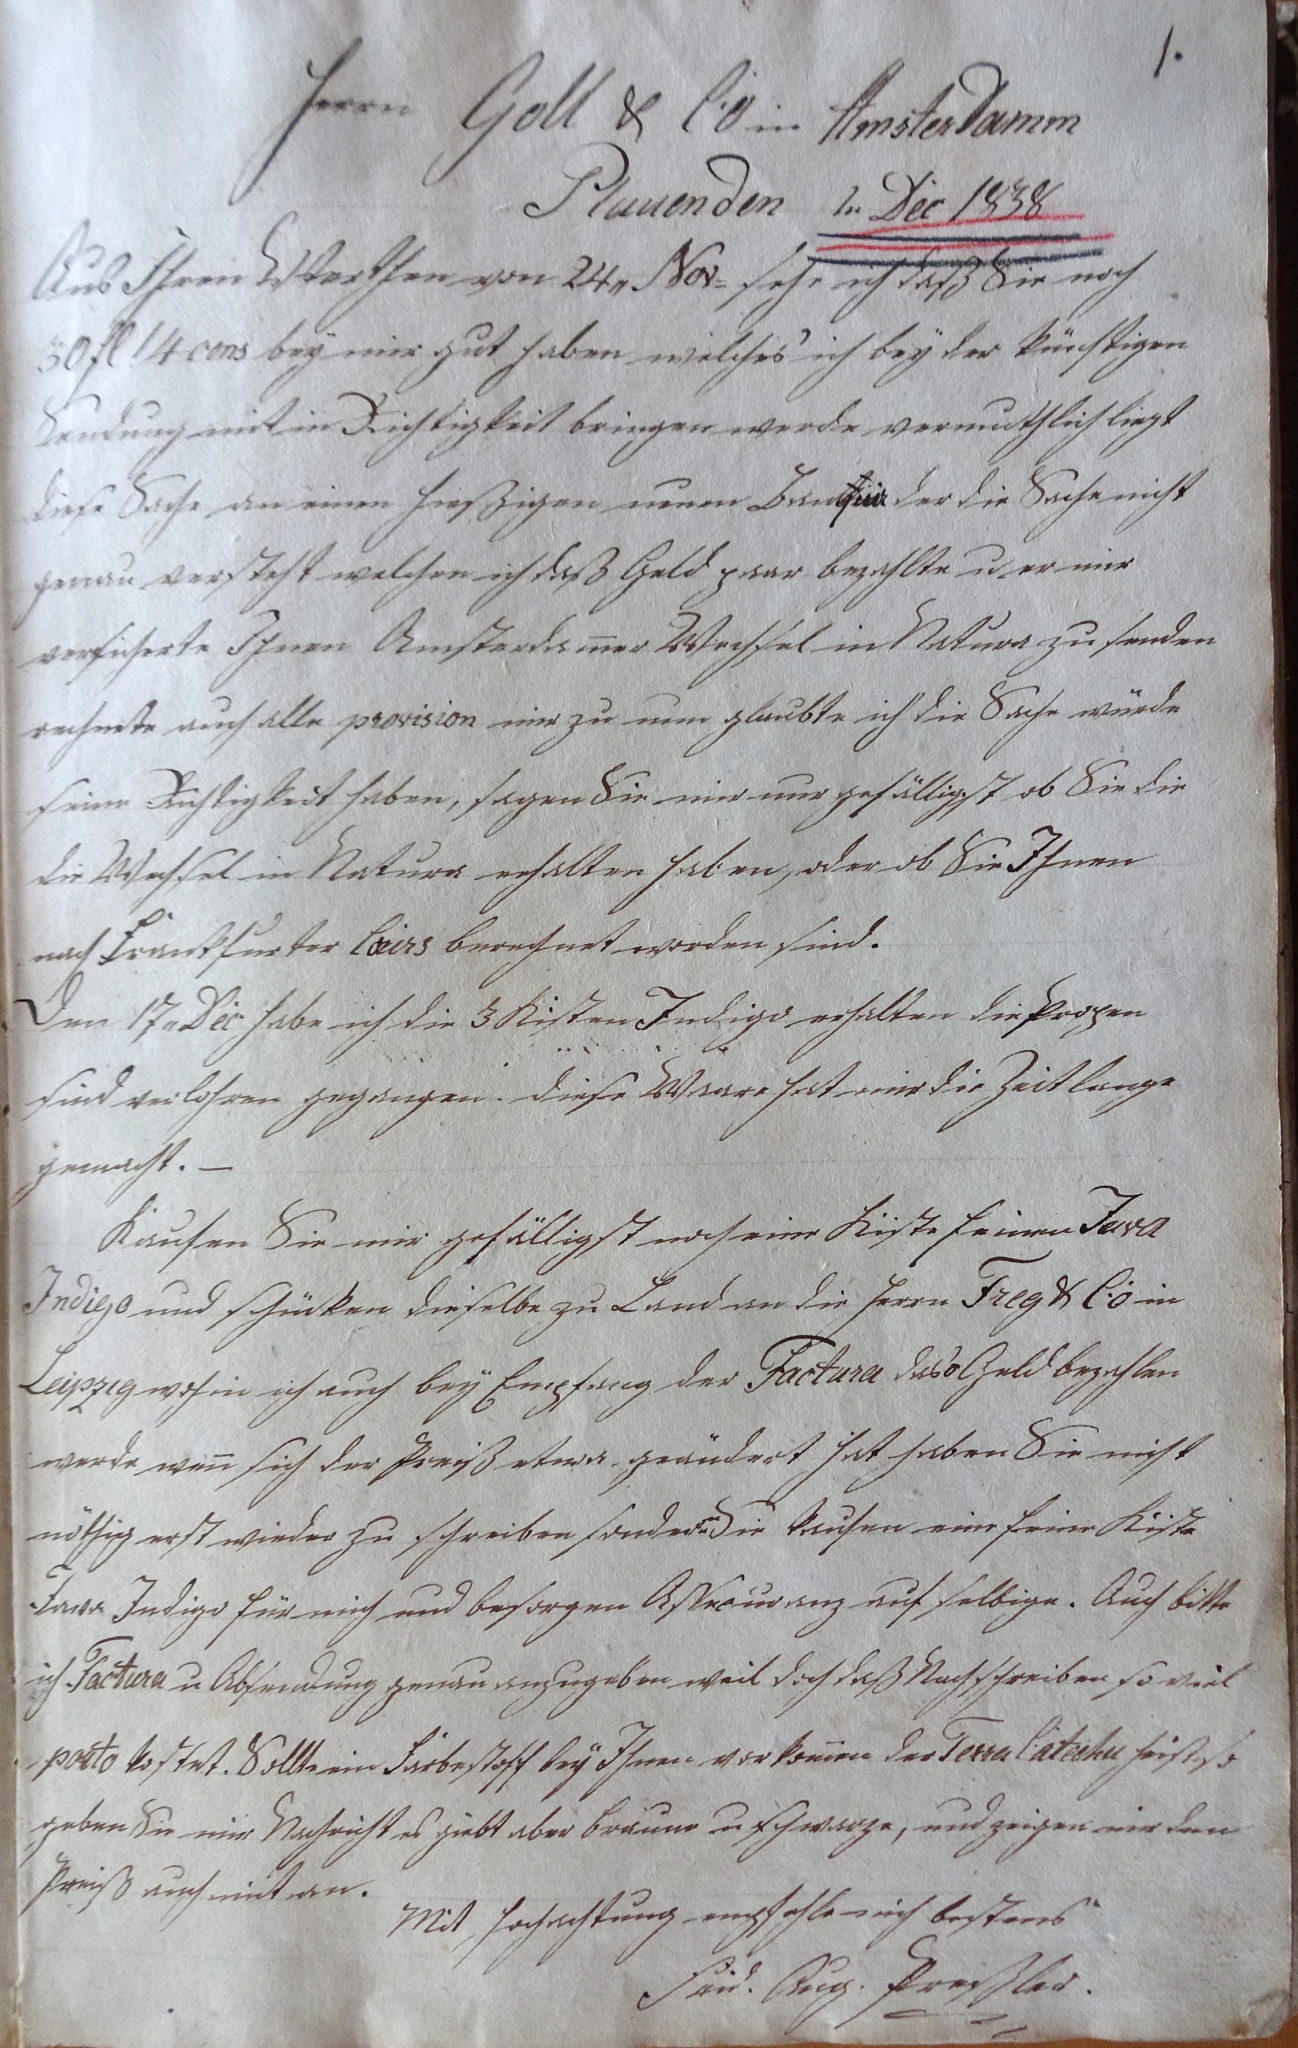 1.
Herrn Goll & Co in Amsterdamm
Plauen den Dec 1838
Aus Ihren Werthen von 24„ Nov. sehe ich daß Sie noch
30 fl 14 cens bey mir gut haben welches ich bey der künftigen
Sendung mit in Richtigkeit bringen werde vermuthlich liegt
diese Sache an einen hießigen neuen Banquir der die Sache nicht
genau versteht welchen ich daß Geld paar bezahlte u er mir
versicherte Ihnen Amsterdammer Wechsel in Natura zu senden
rechnete auch alle provision mir zu nun glaubte ich die Sache würde
seine Richtigkeit haben, sagen Sie mir nur gefälligst ob Sie die
die Wechsel in Natura erhalten haben, oder ob Sie Ihnen
nach Frankfurter Cours berechnet worden sind.
Den 17„ Dec habe ich die 3 Kisten Indigo erhalten die Propen
sind verlohren gegangen. diese Waare hat mir die Zeit lange
gemacht. —
Kaufen Sie mir gefälligst noch eine Kiste feinen Java
Indigo und schicken dieselbe zu Land an die Herrn Freg & Co in
Leipzig wohin ich auch bey Empfang der Factura das Geld bezahlen
werde wenn sich der Preiß etwa geändert hat haben Sie nicht
nöthig erst wieder zu schreiben sondern Sie kaufen eine feine Kiste
Java Indigo für mich und besorgen Assecuranz auf selbige. Auch bitte
ich Factura u Absendung genau anzugeben weil doch daß Nachschreiben so viel
porto kostet. Sollte ein Farbestoff bey Ihnen vorkommen der Terra Catechu heist, so
geben Sie mir Nachricht es giebt aber braune u schwarze, und zeigen mir den
Preiß auch mit an.
Mit Hochachtung empfehle mich bestens
Frid. Aug. Preßler.